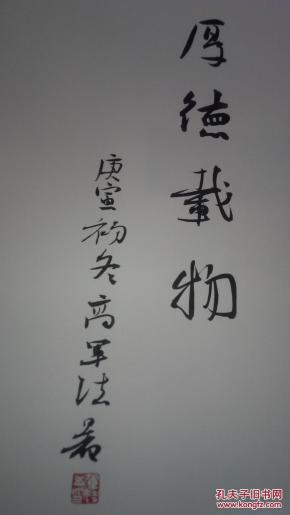 厚德载物
庚寅初冬高军法书
孔夫子旧书网
www.kongfz.com